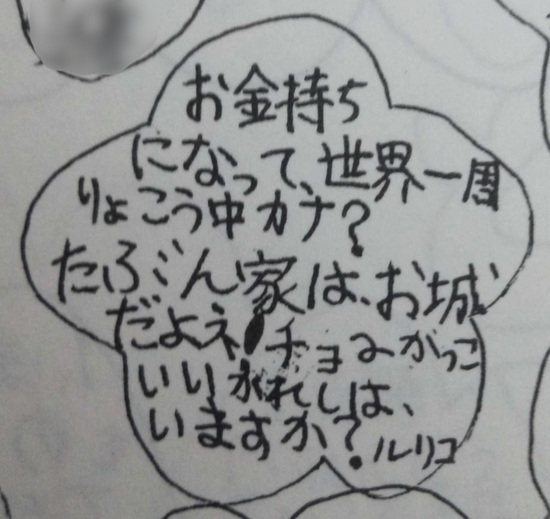 お金持ち
になって、世界一周
りょこう中カナ?
たぶん家は、お城
だよネ!チョーかっこ
いいかれしは、
いますか?
ルリコ